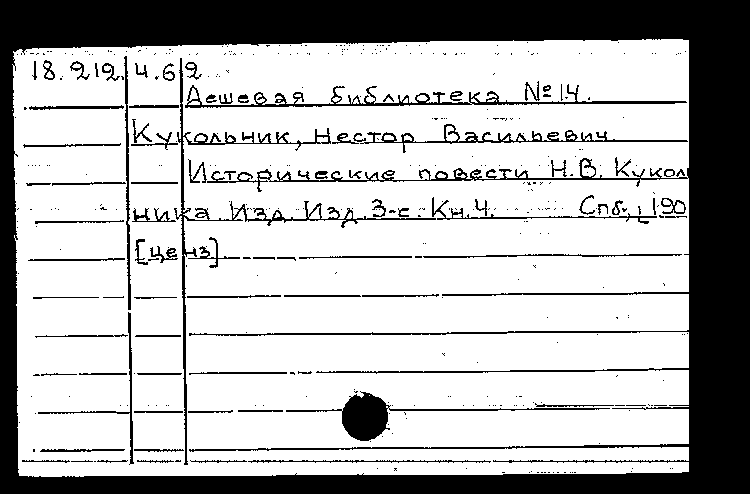 18.212.4.62
Дешевая библиотека №14.
Кукольник, Нестор Васильевич
Исторические повести Н.В. Кукол
ника. Изд. Изд. 3-е. Кн. 4. Спб., 190
[ценз]